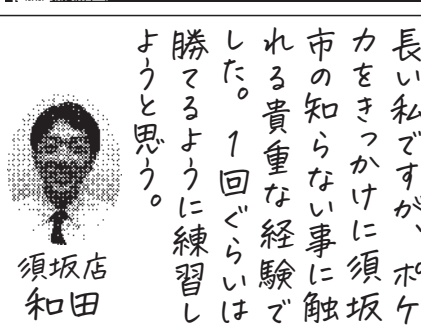 長い私ですが、ポケ
カをきっかけに須坂
市の知らない事に触
れる貴重な経験で
した。1回ぐらいは
勝てるように練習し
ようと思う。
須坂店
和田